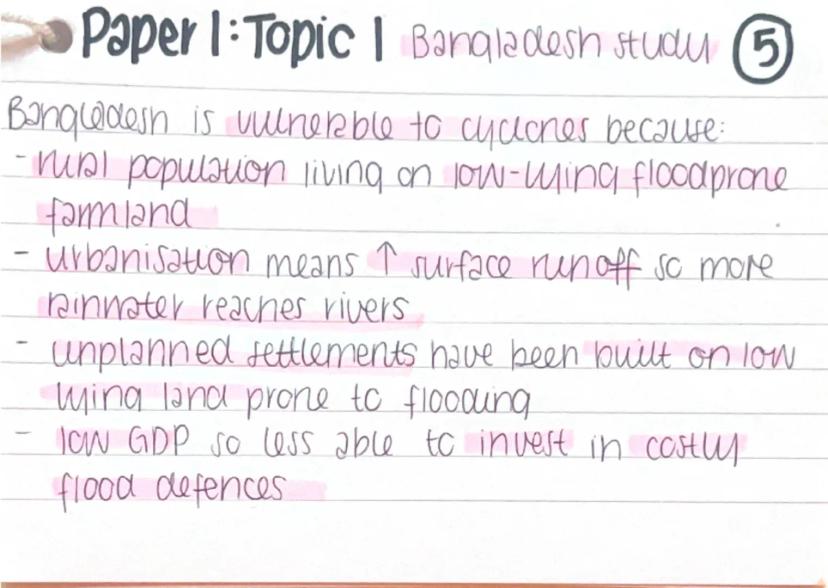 Paper 1: Topic 1 Bangladesh study 5
Bangladesh is vulnerable to cyclones because:
- rural population living on low-lying floodprone
farmland
- urbanisation means ↑ surface runoff so more
rainwater reaches rivers
- unplanned settlements have been built on low
lying land prone to flooding
- low GDP so less able to invest in costly
flood defences